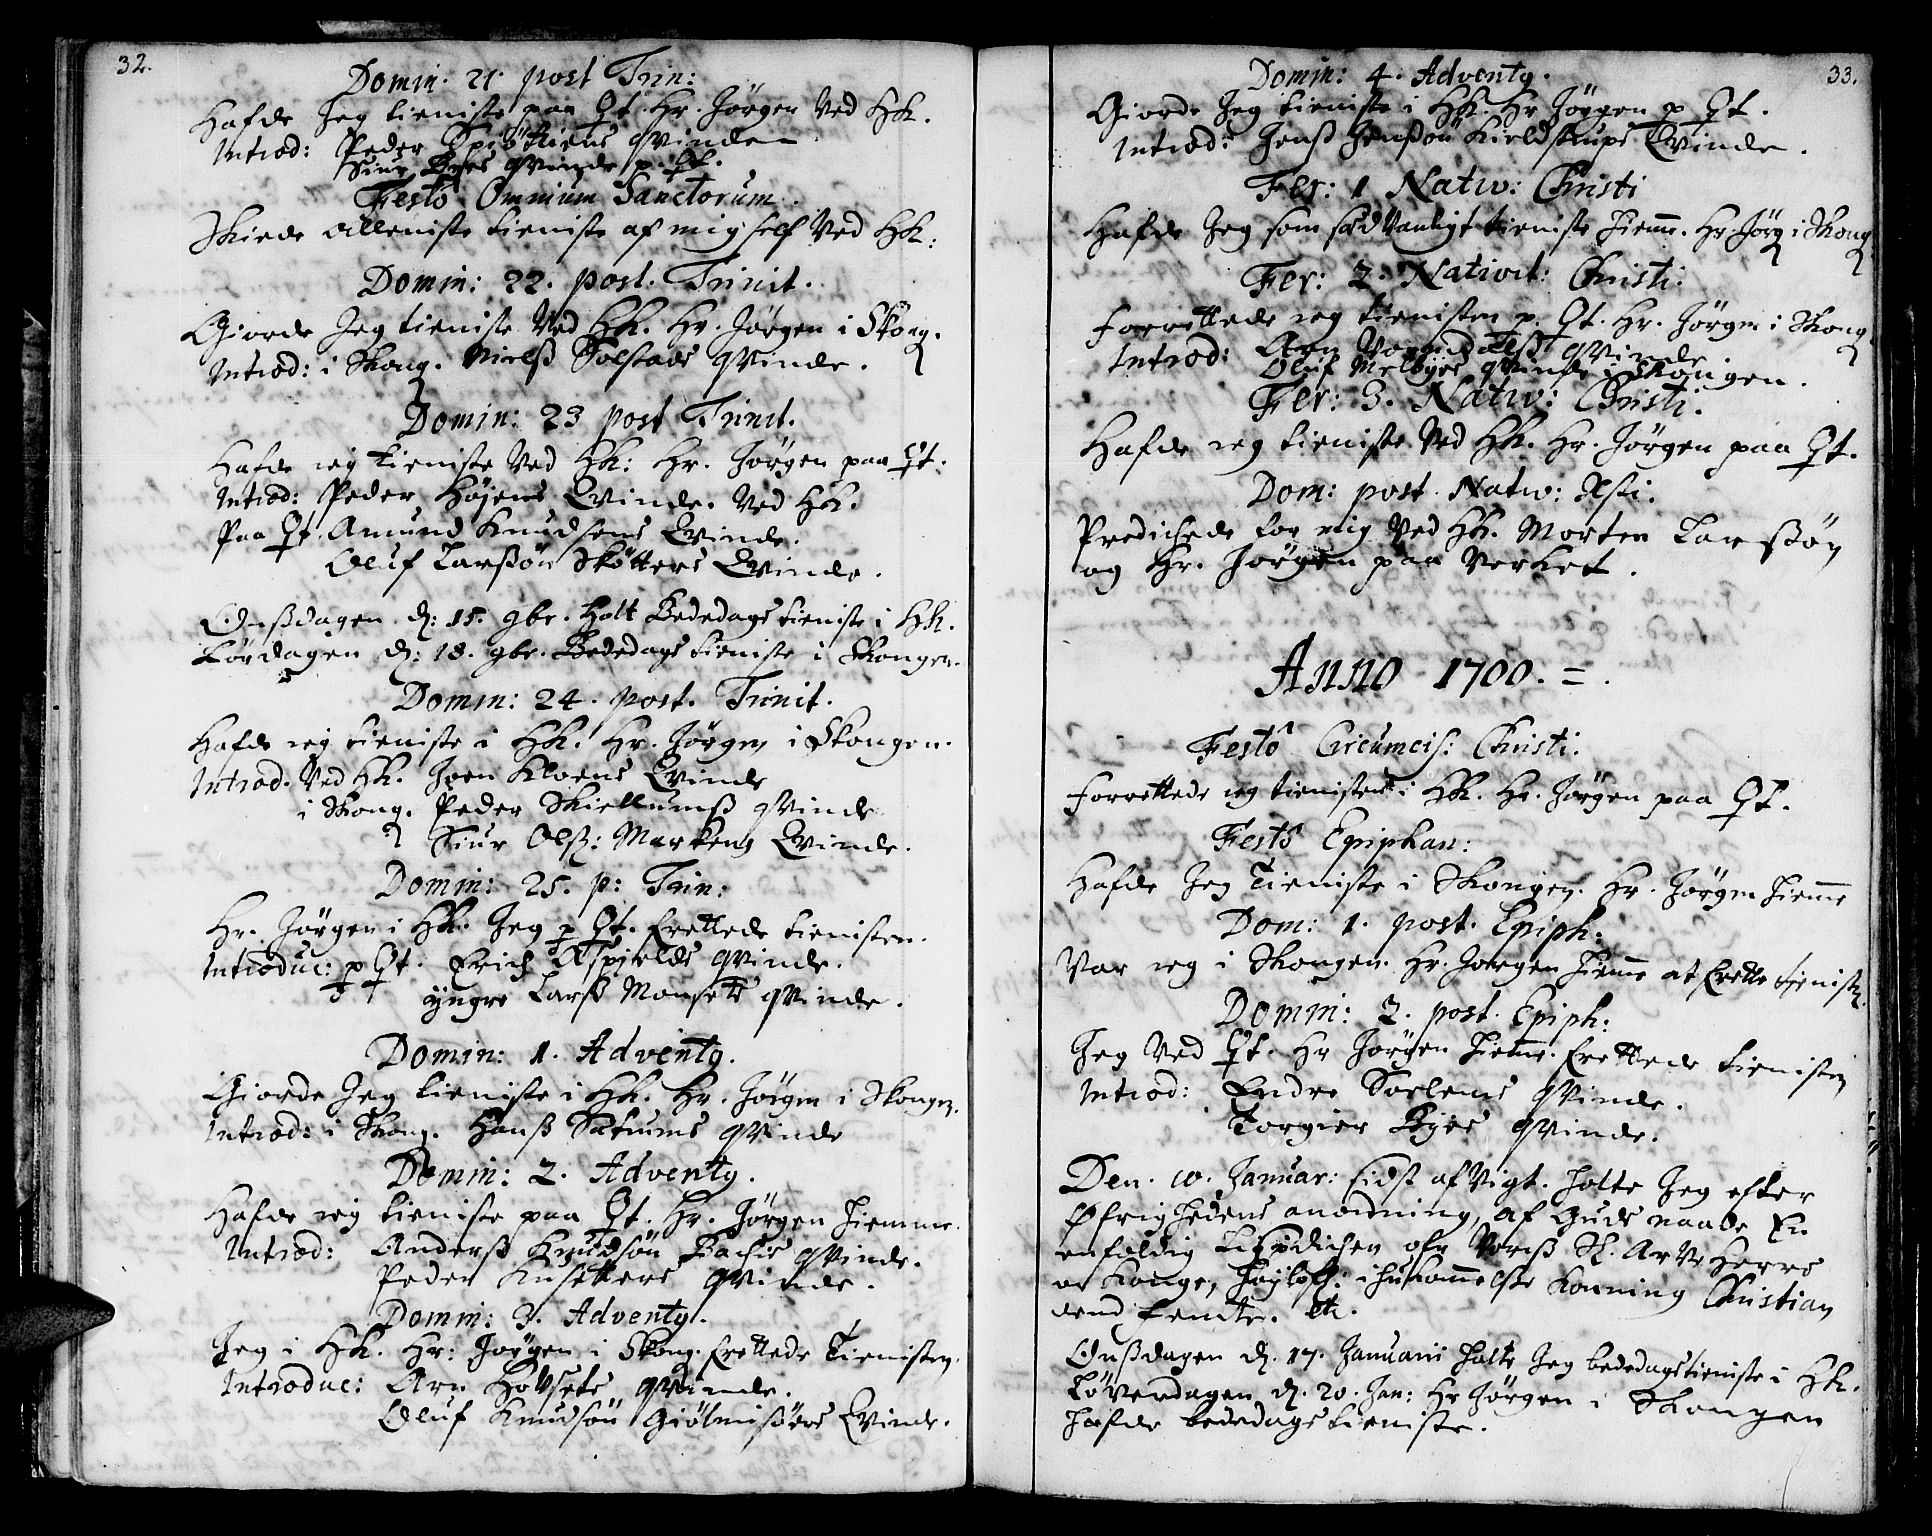 32.
Domin: 21. post Trin:
Hafde Jeg tieniste paa Qt. Hr. Jörgen Ved Hk.
Introd: Peder qvinde
Siur Byes qvinde p. Qt.
Festô Omnium Sanctorum.
Skiede alleniste tieniste af mig self Ved Hk:
Domin: 22. post. Trinit.
Giorde Jeg tieniste Ved Hk. Hr. Jörgen i Skong.
Introd: i Skong. Nielß Solstads qvinde.
Domin: 23 post Trinit.
Hafde ieg tieniste Ved Hk: Hr. Jörgen paa Qt.
Introd: Peder Höjens Qvinde. Ved Hk.
Paa Qt. Amund Knudsens Qvinde.
Oluf Larßön Skötters Qvinde.
Onßdagen d: 15. 9br. Holt Bededags tieniste i Hk.
Lördagen d: 18. 9br. Bededags tieniste i Skongen.
Domin: 24. post. Trinit.
Hafde ieg tieniste i Hk. Hr. Jörgen i Skongen.
Introd. Ved Hk. Joen Kloens Qvinde
i Skong. Peder Skiellumß qvinde
Siur Olß: Markens Qvinde.
Domin: 25. p: Trin:
Hr. Jörgen i Hk. Jeg p Qt. forrettede tienisten.
Introduc: p Qt. Erich Aspields qvinde.
yngre Larß Monsets qvinde.
Domin: 1. Adventg.
Giorde Jeg tieniste i Hk. Hr. Jörgen i Skongen.
Introd: i Skong. Hanß Sætrums qvinde
Domin: 2. Adventg.
Hafde ieg tieniste paa Qt. Hr. Jörgen hiemme.
Introd: Anderß Knudsön Bachis qvinde.
Peder Knsetters qvinde.
Domin: 3. Adventg.
Jeg i Hk. Hr: Jörgen i Skong. forrettede Tienisten.
Introduc: Arn Hovsets qvinde.
Oluf Knudsön Giölmißörs Qvinde.
33.
Domin: 4. Adventg.
Giorde Jeg tieniste i Hk. Hr Jörgen p Qt.
Introd: Jenß Jenßön Kieldstrups Qvinde.
Fer: 1 Nativ: Christi
Hafde Jeg som sædvanligt tieniste hiemme. Hr. Jörg i Skong
Fer: 2. Nativit: Christi:
forrettede ieg tienisten p. Qt. Hr. Jörgen i Skong
Introd: Arn qvinde
Oluf Melbyes qvinde i Skongen.
Fer: 3. Nativ: Christi.
Hafde ieg tieniste Ved Hk. Hr. Jörgen paa Qt.
Dom: post. Nativ: Xsti.
Predichede for mig Ved Hk. Morten Larßön
og Hr. Jörgen paa Verket.
Anno 1700. =.
Festô Circumcis: Christi.
forrettede ieg tienisten i Hk. Hr. Jörgen paa Qt.
Festô Epiphan:
Hafde Jeg Tieniste i Skongen. Hr. Jörgen hiemme
Dom: 1. post. Epiph:
Var ieg i Skongen. Hr. Joergen hiemme at forrette tienist.
Domin: 2. post. Epiph:
Jeg Ved Qt. Hr Jörgen hieme. forrettede tienisten
Introd: Endre Soelems qvinde.
Torgier Byes qvinde.
Den. 10. Januar: sidst afvigt. holte Jeg efter
Øfrighedens anordning, af Guds naade En
enfoldig Ligprediken ofr Vorß Sl. Arve Herre
og Konge, Höylofl: ihukommelste Konning Christian
dend femte. etc.
Onßdagen d. 17. Januarii holte Jeg bededagstieniste i Hk.
Löverdagen d. 20. Jan: Hr Jörgen i Skongen
hafde bededags tieniste.